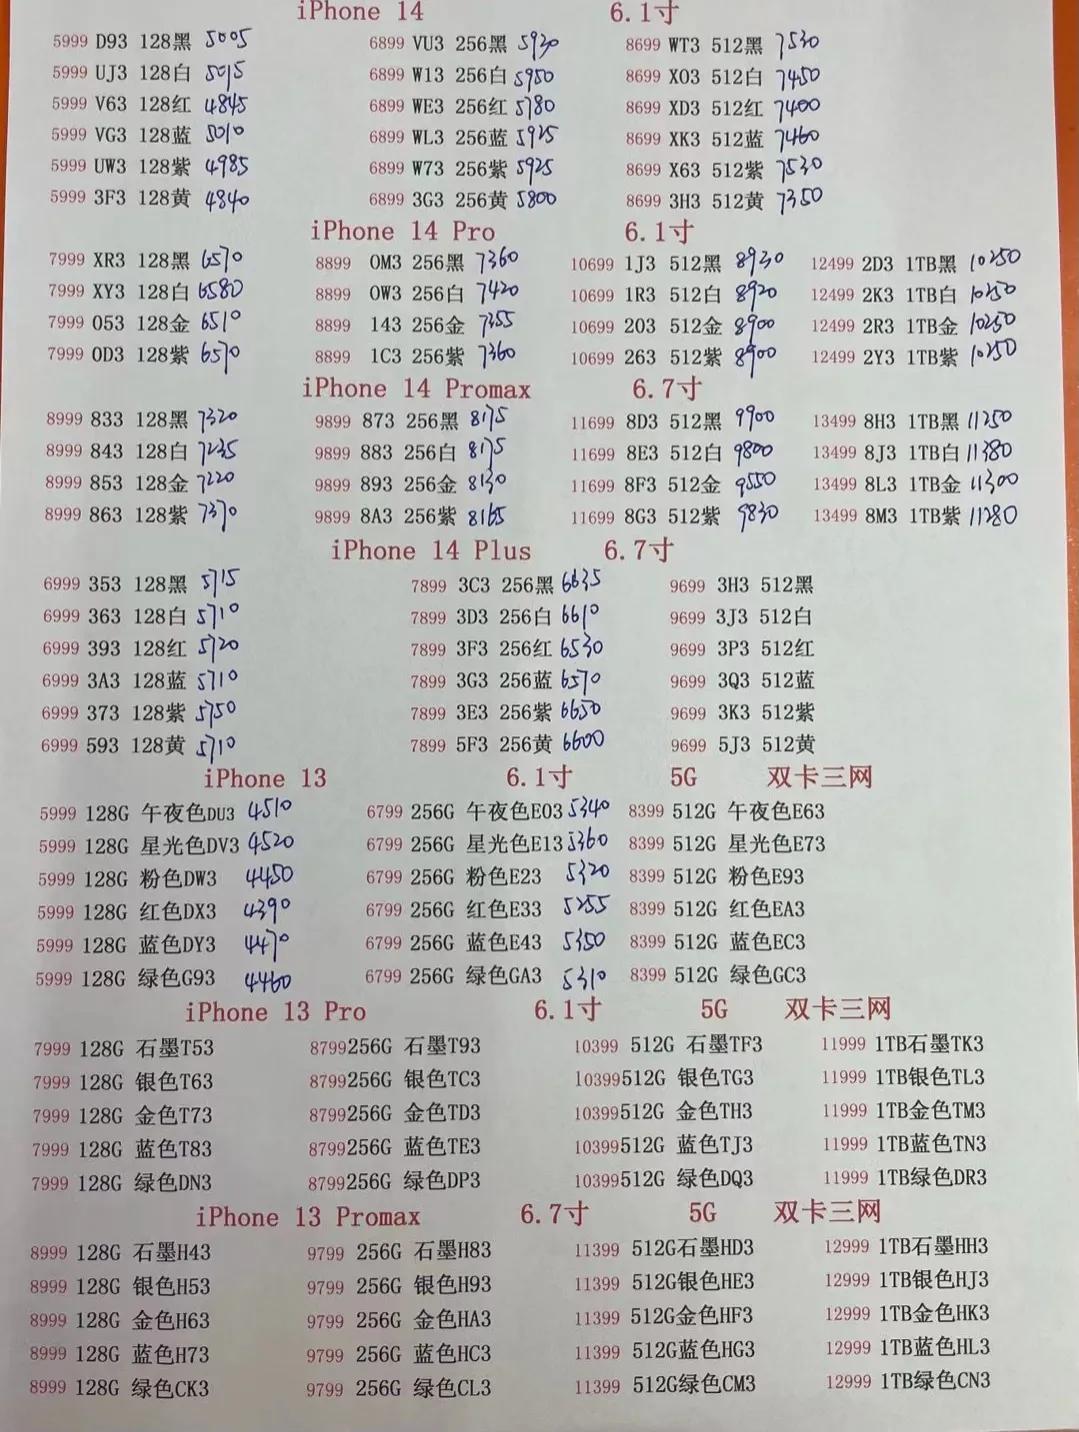 iPhone 14 6.1寸
5999 D93 128黑 5005 6899 VU3 256黑 5930 8699 WT3 512黑 7530
5999 UJ3 128白 5015 6899 W13 256白 5950 8699 XO3 512白 7450
5999 V63 128红 4845 6899 WE3 256红 5780 8699 XD3 512红 7400
5999 VG3 128蓝 5010 6899 WL3 256蓝 5925 8699 XK3 512蓝 7460
5999 UW3 128紫 4985 6899 W73 256紫 5925 8699 X63 512紫 7530
5999 3F3 128黄 4840 6899 3G3 256黄 5800 8699 3H3 512黄 7350
iPhone 14 Pro 6.1寸
7999 XR3 128黑 6570 8899 0M3 256黑 7360 10699 1J3 512黑 8930 12499 2D3 1TB黑 10250
7999 XY3 128白 6580 8899 0W3 256白 7420 10699 1R3 512白 8920 12499 2K3 1TB白 10250
7999 053 128金 6510 8899 143 256金 7355 10699 203 512金 8900 12499 2R3 1TB金 10250
7999 0D3 128紫 6570 8899 1C3 256紫 7360 10699 263 512紫 8900 12499 2Y3 1TB紫 10250
iPhone 14 Promax 6.7寸
8999 833 128黑 7320 9899 873 256黑 8175 11699 8D3 512黑 9900 13499 8H3 1TB黑 11250
8999 843 128白 7235 9899 883 256白 8175 11699 8E3 512白 9800 13499 8J3 1TB白 11380
8999 853 128金 7220 9899 893 256金 8130 11699 8F3 512金 9550 13499 8L3 1TB金 11300
8999 863 128紫 7370 9899 8A3 256紫 8165 11699 8G3 512紫 9830 13499 8M3 1TB紫 11280
iPhone 14 Plus 6.7寸
6999 353 128黑 5715 7899 3C3 256黑 6635 9699 3H3 512黑
6999 363 128白 5710 7899 3D3 256白 6610 9699 3J3 512白
6999 393 128红 5720 7899 3F3 256红 6530 9699 3P3 512红
6999 3A3 128蓝 5710 7899 3G3 256蓝 6570 9699 3Q3 512蓝
6999 373 128紫 5750 7899 3E3 256紫 6650 9699 3K3 512紫
6999 593 128黄 5710 7899 5F3 256黄 6600 9699 5J3 512黄
iPhone 13 6.1寸 5G 双卡三网
5999 128G 午夜色DU3 4510 6799 256G 午夜色E03 5340 8399 512G 午夜色E63
5999 128G 星光色DV3 4520 6799 256G 星光色E13 5360 8399 512G 星光色E73
5999 128G 粉色DW3 4450 6799 256G 粉色E23 5320 8399 512G 粉色E93
5999 128G 红色DX3 4390 6799 256G 红色E33 5255 8399 512G 红色EA3
5999 128G 蓝色DY3 4470 6799 256G 蓝色E43 5350 8399 512G 蓝色EC3
5999 128G 绿色G93 4460 6799 256G 绿色GA3 5310 8399 512G 绿色GC3
iPhone 13 Pro 6.1寸 5G 双卡三网
7999 128G 石墨T53 8799 256G 石墨T93 10399 512G 石墨TF3 11999 1TB石墨TK3
7999 128G 银色T63 8799 256G 银色TC3 10399 512G 银色TG3 11999 1TB银色TL3
7999 128G 金色T73 8799 256G 金色TD3 10399 512G 金色TH3 11999 1TB金色TM3
7999 128G 蓝色T83 8799 256G 蓝色TE3 10399 512G 蓝色TJ3 11999 1TB蓝色TN3
7999 128G 绿色DN3 8799 256G 绿色DP3 10399 512G 绿色DQ3 11999 1TB绿色DR3
iPhone 13 Promax 6.7寸 5G 双卡三网
8999 128G 石墨H43 9799 256G 石墨H83 11399 512G石墨HD3 12999 1TB石墨HH3
8999 128G 银色H53 9799 256G 银色H93 11399 512G银色HE3 12999 1TB银色HJ3
8999 128G 金色H63 9799 256G 金色HA3 11399 512G金色HF3 12999 1TB金色HK3
8999 128G 蓝色H73 9799 256G 蓝色HC3 11399 512G蓝色HG3 12999 1TB蓝色HL3
8999 128G 绿色CK3 9799 256G 绿色CL3 11399 512G绿色CM3 12999 1TB绿色CN3